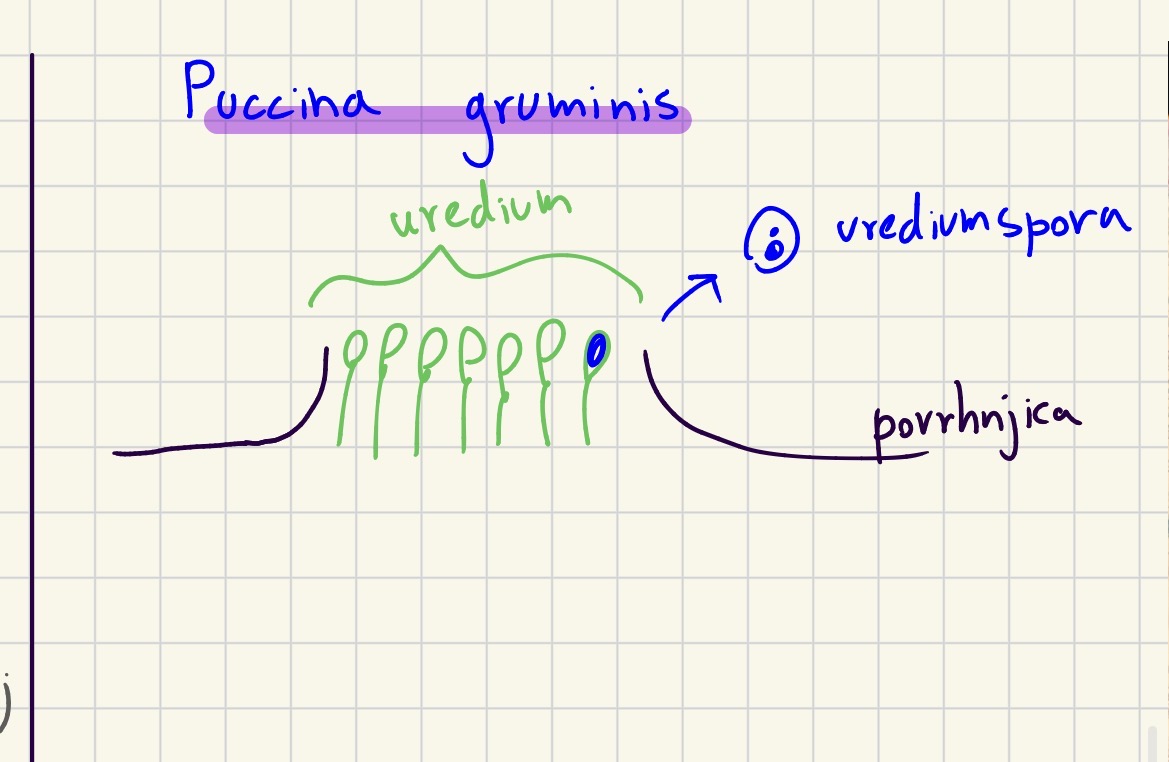 Puccina gruminis
uredium
urediumspora
povrhnjica
j